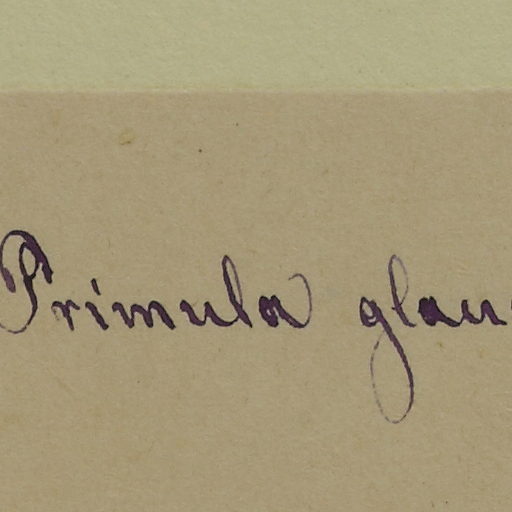 Primula glau